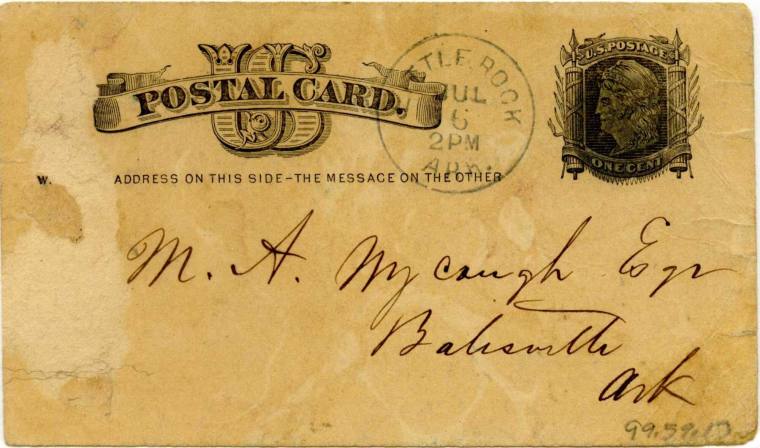 US
POSTAL CARD.
U.S. POSTAGE
ONE CENT
LITTLE ROCK
JUL
6
2PM
ARK.
W. ADDRESS ON THIS SIDE–THE MESSAGE ON THE OTHER
M. A. Wycough Esqr
Batesville
Ark
99.59.13